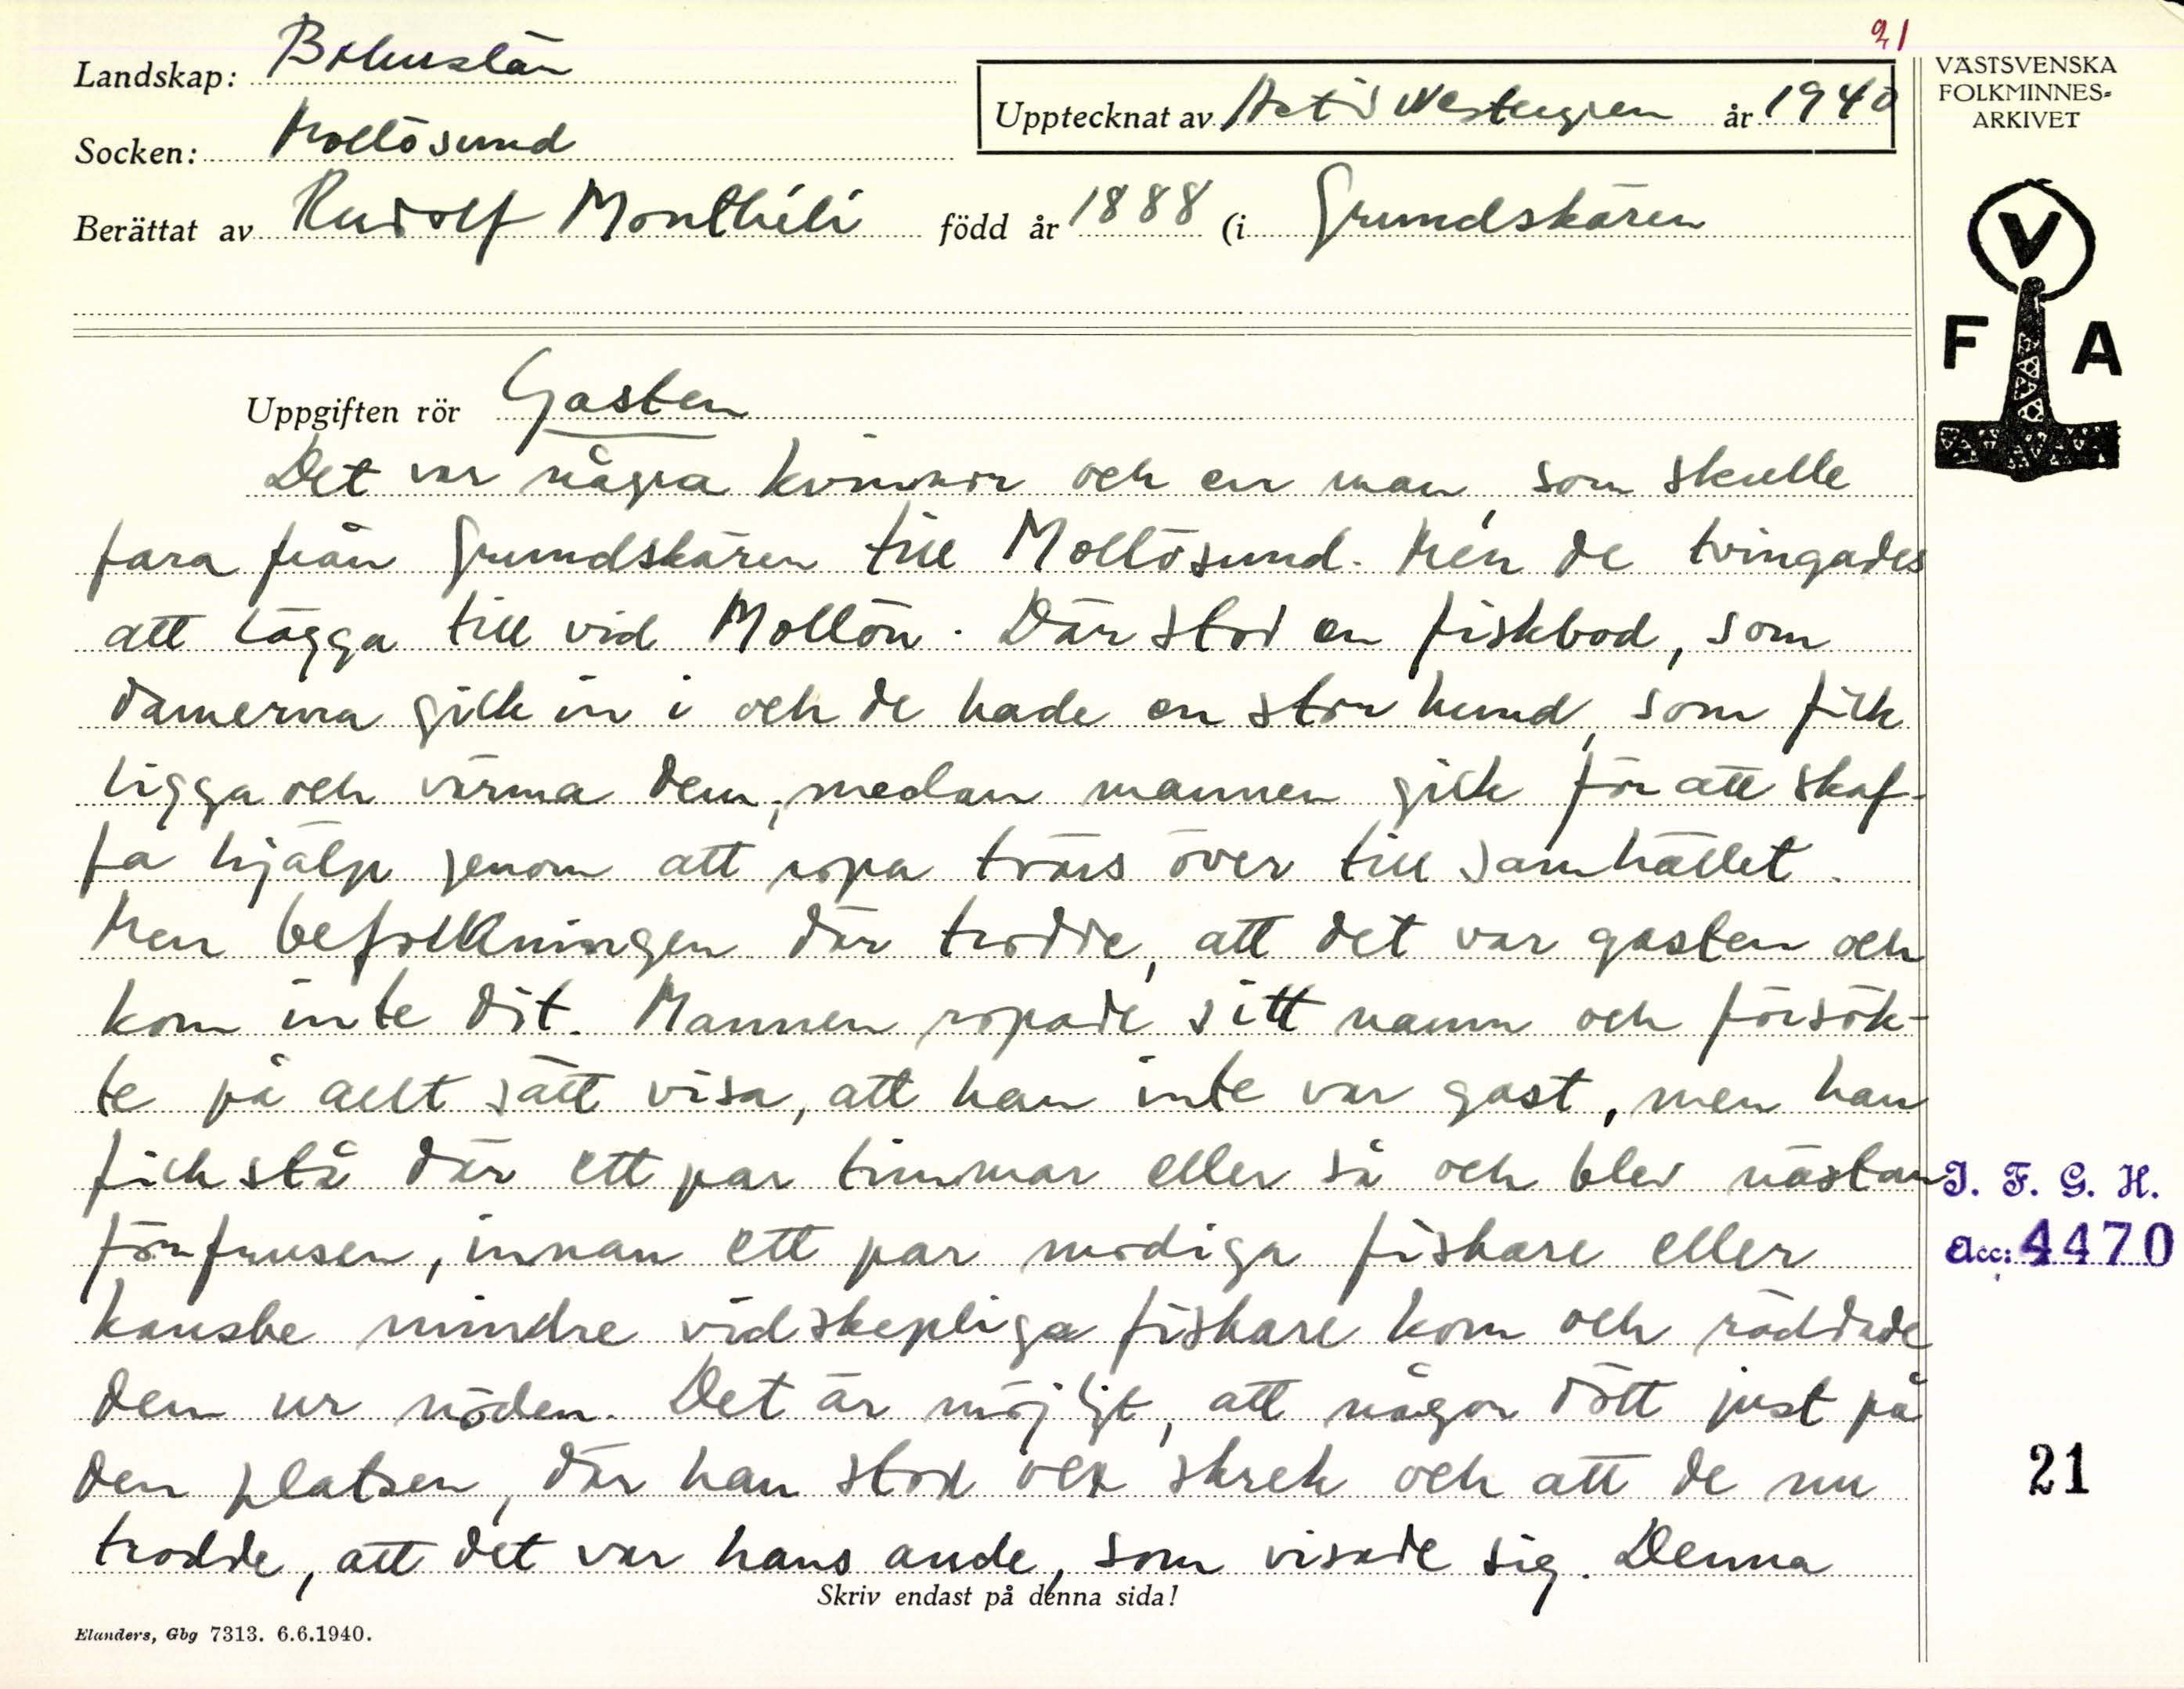 21
Landskap: Bohuslän
Socken: Mollösund
Upptecknat av Westergren år 1940
Berättat av Rudolf född år 1888 (i Grundskären
VÄSTSVENSKA
FOLKMINNES-
ARKIVET
V
F A
Uppgiften rör Gasten
Det var några kvinnor och en man, som skulle
fara från Grundskären till Mollösund. Men de tvingades
att lägga till vid Mollön. Där stod en fiskbod, som
damerna gick in i och de hade en stor hund, som fick
ligga och värma dem, medan mannen gick för att skaf-
fa hjälp genom att ropa tvärs över till samhället.
Men befolkningen där trodde, att det var gasten och
kom inte dit. Mannen ropade sitt namn och försök-
te på allt sätt visa, att han inte var gast, men han
fick stå där ett par timmar eller så och blev nästan
förfrusen, innan ett par modiga fiskare eller
kanske mindre vidskepliga fiskare kom och räddade
dem ur nöden. Det är möjligt, att någon dött just på
den platsen, där han stod och skrek och att de nu
trodde, att det var hans ande, som visade sig. Denna
Skriv endast på denna sida!
Elanders, Gbg 7313. 6.6.1940.
I. F. G. H.
Acc: 4470
21